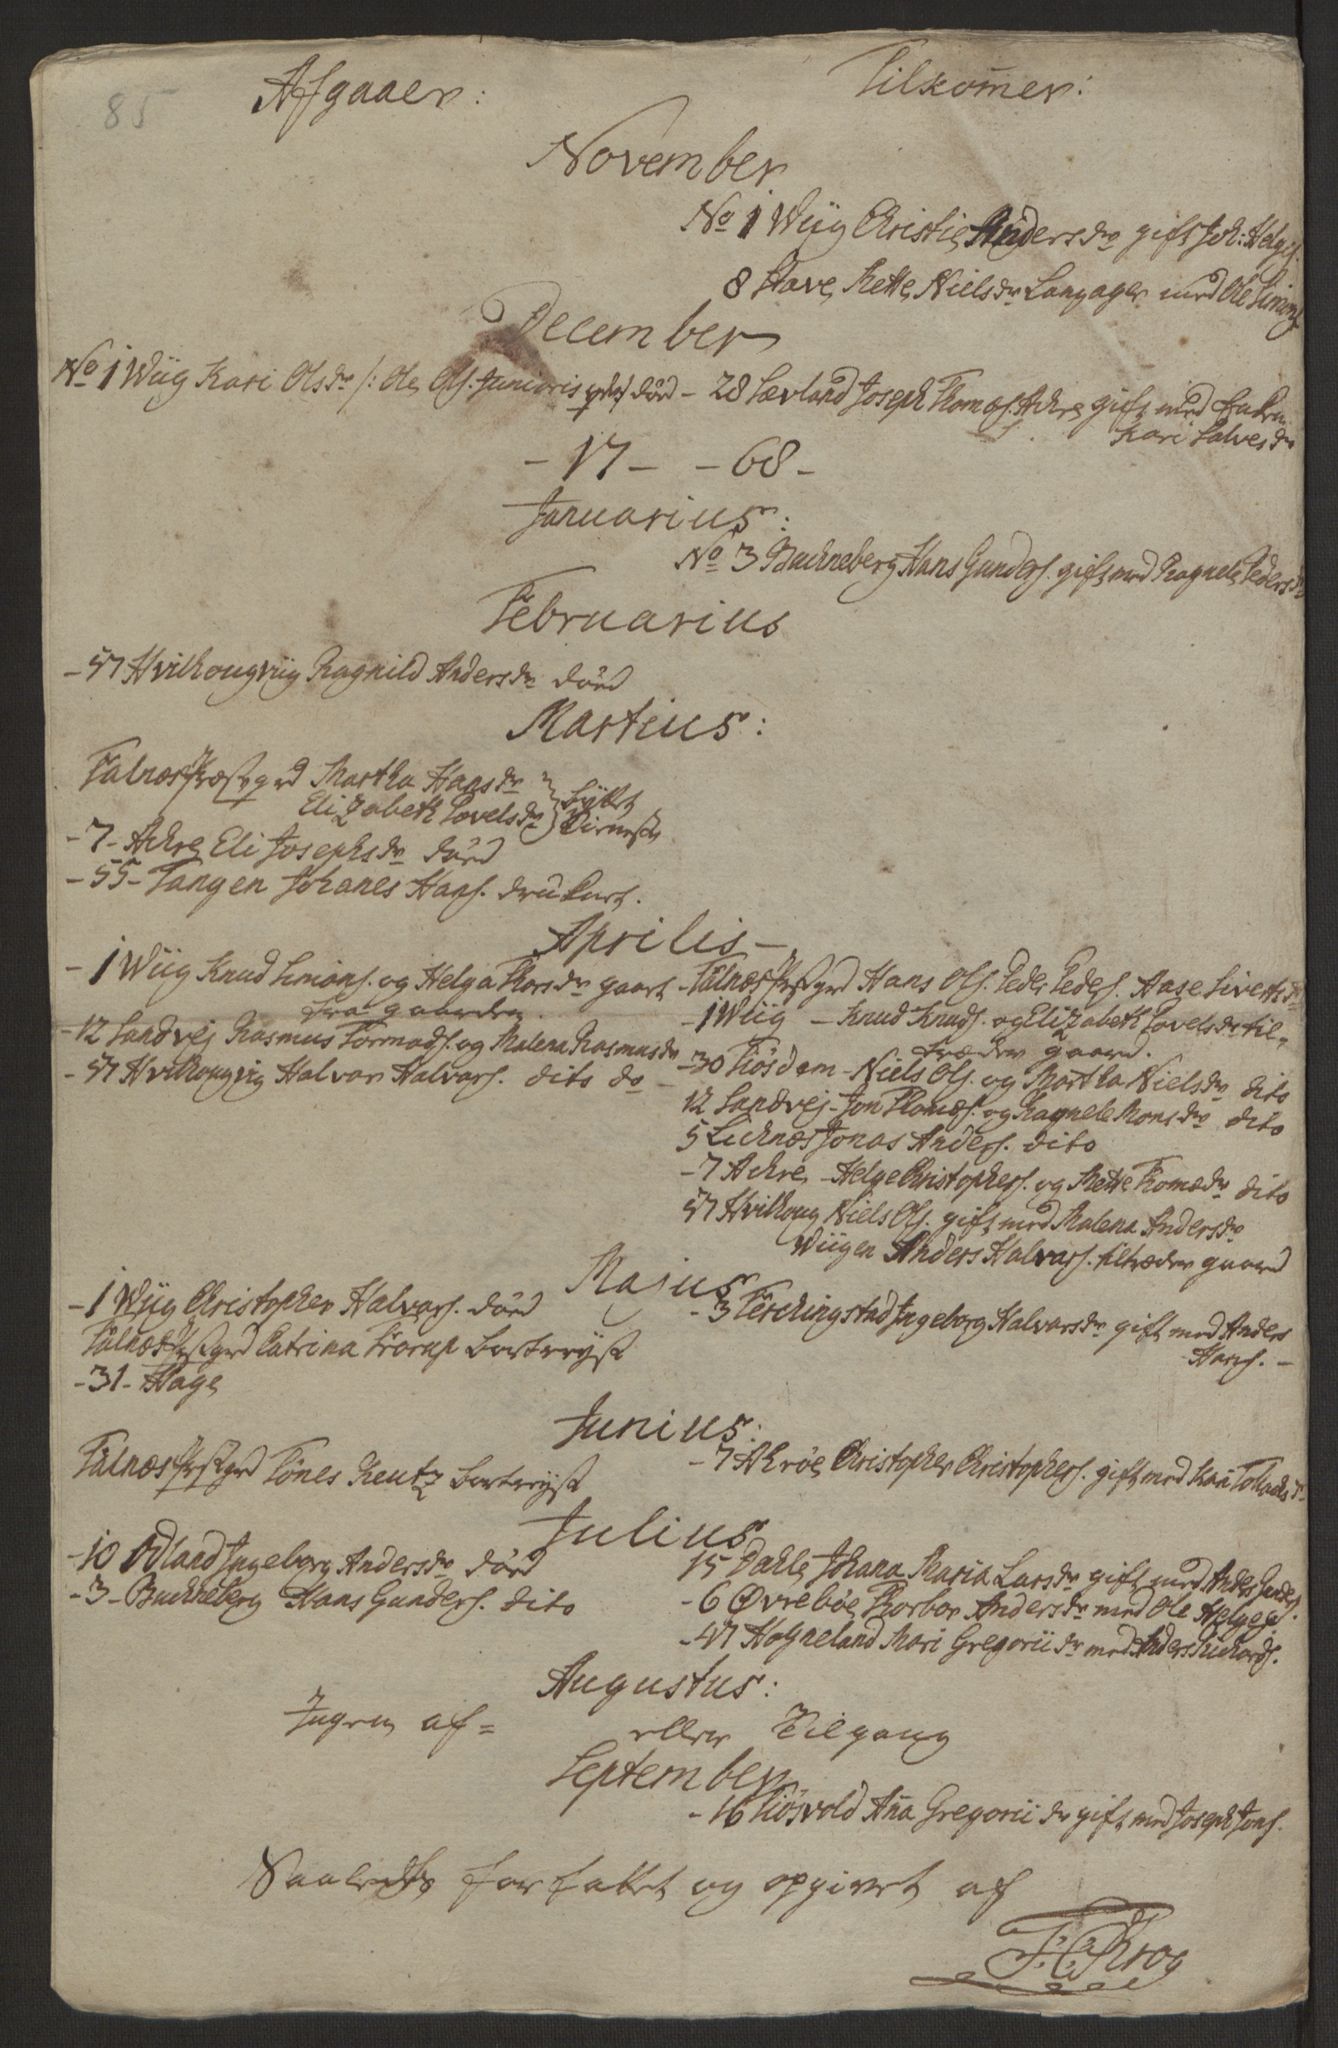 85
Afgaaer: Tilkom̄er:
November
No 1 Wiig Christie Andersdr gift Joh: Helges.
8 Have, Mette Nielsdr Langager med Ole Simons.
December
No 1 Wiig Kari Olsdr /: Ole Ols. Junioris død - 28 Sævland Joseph Thomæs. Achre gift med Enken
Kari Salvesdr
- 17 - - 68 -
Januarius:
No 3 Bachneberg Hans Gunders. gift med Ragnele Pedersdr
Februarius
- 57 Hvilhougviig Ragnild Andersdr død
Martius:
Falnæs Præstegrd Martha Hansdr
Elizabeth Povelsdr } byttet Tieneste
- 7 - Achre Eli Josephsdr død
- 55 - Tangen Johanes Hans. druknet.
Aprilis -
- 1 Wiig Knud Simons. og Helga Thorsdr gaaet
fra gaarden.
- 12 Sandvej Rasmus Tormods. og Malena Rasmusdr
- 57 Hvilhougviig Halvor Halvors. dito do -
- Falnæs Præstgrd Hans Ols. Peder Peders. Aase Sivertsdr
- 1 Wiig - Knud Knuds. og Elizabeth Povelsdr til-
træder gaard.
- 30 Tiösdem - Niels Ols. og Martha Nielsdr dito
12 Sandvej - Jon Thomæs. og Ragnele Monsdr dito
5 Lichnæs Jonas Anders. dito
- 7 Achre - Helge Christophers. og Mette Thomædr dito
57 Hvilhoug Niels Ols. gift med Malena Andersdr
Wiigen Anders Halvors. tiltræder gaard
Majus
- 1 Wiig Christopher Halvors. død
Falnæs Præstgrd Catrina Trorup bortreyst
- 31 - Hage
- 3 Ferchingstad Ingeborg Halvorsdr gift med Anders
Hans. -
Junius:
Falnæs Præstgrd Tönes Reutz bortreyst
- 7 Ahröe Christopher Christophers. gift med Kari Tollachsdr
Julius
- 10 Ødland Ingeborg Andersdr død
- 3 - Bachneberg Hans Gunders. dito
15 Dahle Johana Maria Larsdr gift med Anders Gunders.
- 6 Øvrebøe Thorbor Andersdr med Ole Helges.
- 47 Hogneland Mari Gregoriidr med Anders Richards.
Augustus:
Ingen af= eller Tilgang
September
- 16 Tiösvold An̄a Gregorii dr gift med Joseph Jons.
Saaledes forfattet og opgivet af
F: C: Krog